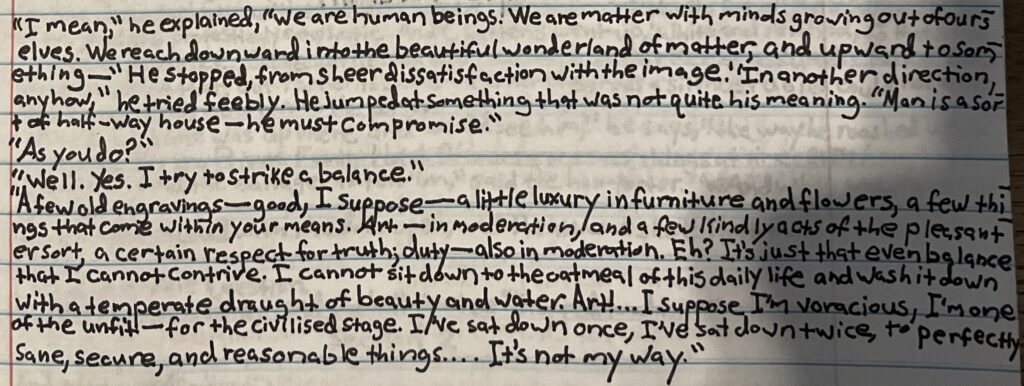 "I mean," he explained, "we are human beings. We are matter with minds growing out of ours
elves. We reach downward into the beautiful wonderland of matter, and upward to som
ething—" He stopped, from sheer dissatisfaction with the image. "In another direction,
anyhow," he tried feebly. He jumped at something that was not quite his meaning. "Man is a sor
t of half-way house—he must compromise."
"As you do?"
"Well. Yes. I try to strike a balance."
"A few old engravings—good, I suppose—a little luxury in furniture and flowers, a few thi
ngs that come within your means. Art—in moderation, and a few kindly acts of the pleasant
er sort, a certain respect for truth; duty—also in moderation. Eh? It's just that even balance
that I cannot contrive. I cannot sit down to the oatmeal of this daily life and wash it down
with a temperate draught of beauty and water. Art!... I suppose I'm voracious, I'm one
of the unfit—for the civilised stage. I've sat down once, I've sat down twice, to perfectly
sane, secure, and reasonable things.... It's not my way."